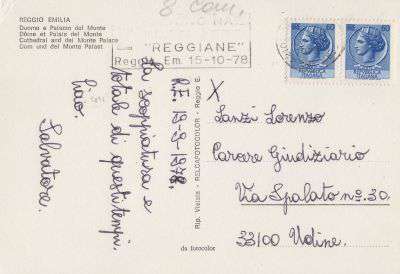 REGGIO EMILIA
Duomo e Palazzo del Monte
Dôme et Palais del Monte
Cathedral and del Monte Palace
Dom und del Monte Palast
8 com.
"REGGIANE"
Reggio Em. 15-10-78
R.E. 19-9-1978.
La scoppiatura è
totale di questi tempi.
Ciao.
Salvatore.
Rip. Vietata - RELCAFOTOCOLOR - Reggio E.
da fotocolor
X
Lanzi Lorenzo
Carcere Giudiziario
Via Spalato n.º 30.
33100 Udine.